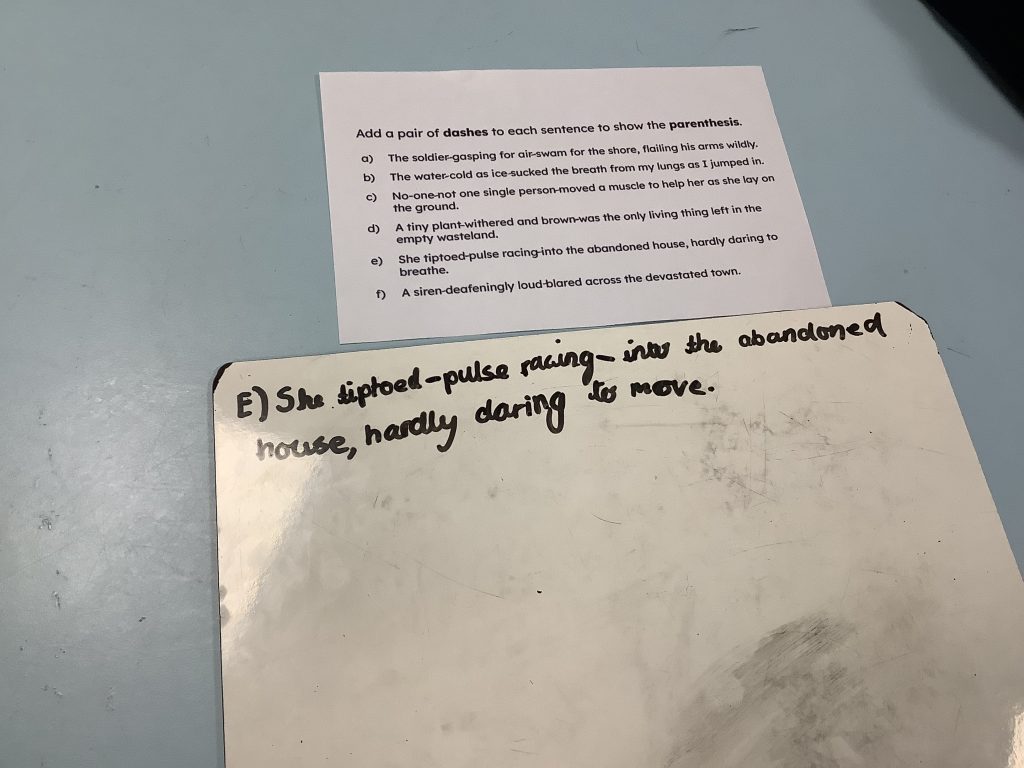 Add a pair of dashes to each sentence to show the parenthesis.
a) The soldier-gasping for air-swam for the shore, flailing his arms wildly.
b) The water-cold as ice-sucked the breath from my lungs as I jumped in.
c) No-one-not one single person-moved a muscle to help her as she lay on
the ground.
d) A tiny plant-withered and brown-was the only living thing left in the
empty wasteland.
e) She tiptoed-pulse racing-into the abandoned house, hardly daring to
breathe.
f) A siren-deafeningly loud-blared across the devastated town.
E) She tiptoed-pulse racing- into the abandoned
house, hardly daring to move.